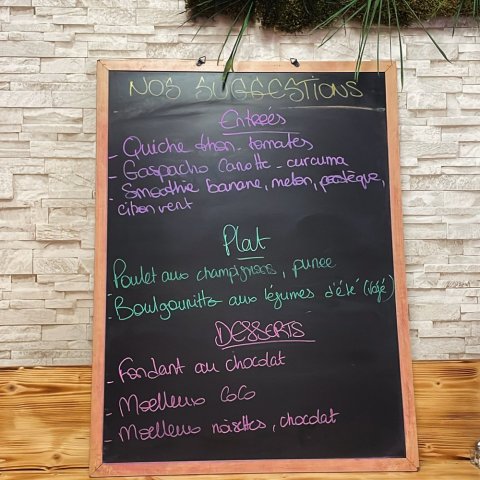 NOS SUGGESTIONS
Entrées
- Quiche thon - tomates
- Gaspacho Carotte - curcuma
- Smoothie banane, melon, pastèque,
citron vert
Plat
- Poulet aux champignons, purée
- Boulgourotto aux légumes d'été (végé)
DESSERTS
- Fondant au chocolat
- Moelleux CoCo
- Moelleux noisettes, chocolat